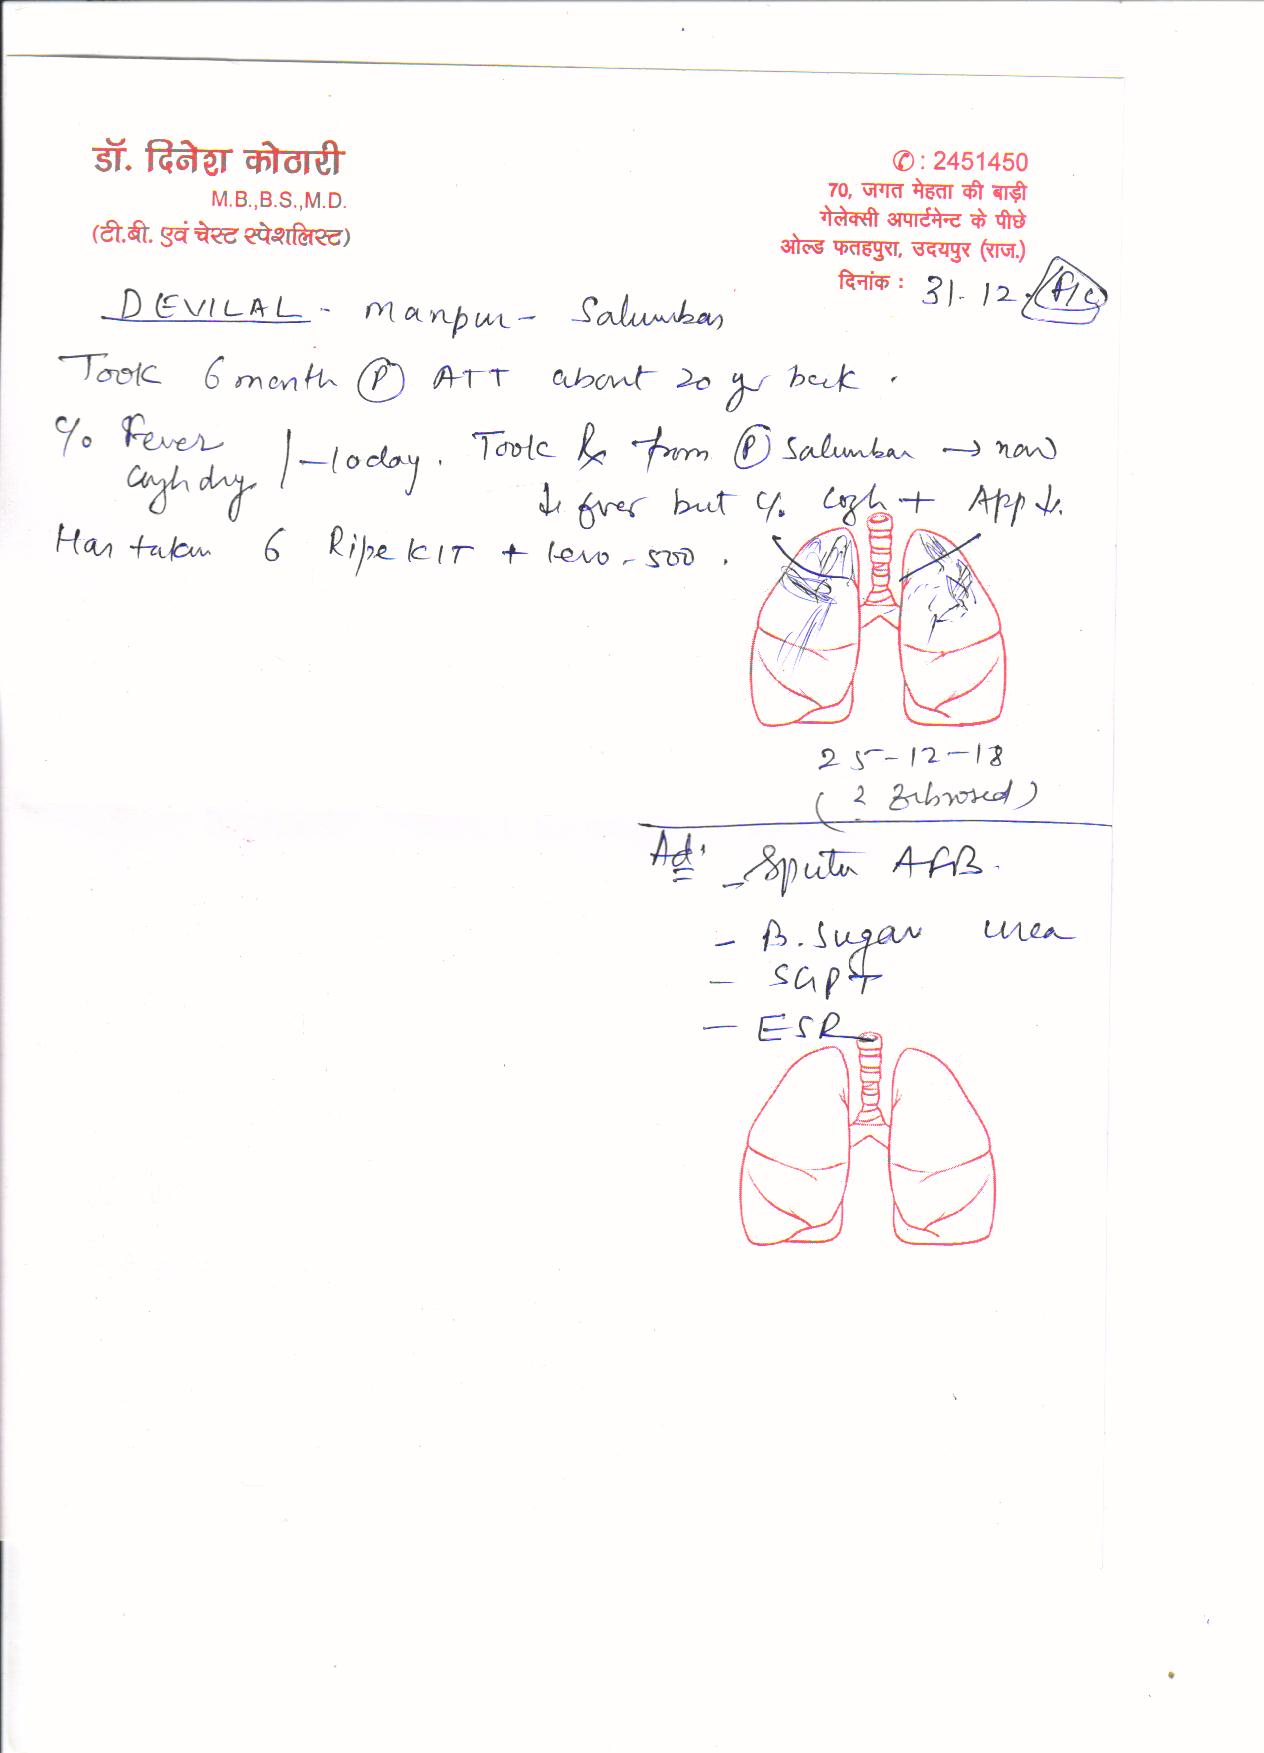 डॉ. दिनेश कोठारी
M.B.,B.S.,M.D.
(टी.बी. एवं चेस्ट स्पेशलिस्ट)
✆ : 2451450
70, जगत मेहता की बाड़ी
गेलेक्सी अपार्टमेन्ट के पीछे
ओल्ड फतहपुरा, उदयपुर (राज.)
दिनांक : 31.12.
DEVILAL - Manpur - Salumbar
Took 6 month (P) ATT about 20 yr back.
c/o Fever
Cough dry
- 10 day. Took Rx from (P) Salumbar → now
↓ fever but c/o Cogh + App ↓.
Has taken 6 Ripe KIT + levo-500.
25-12-18
Ad: - Sputm AFB.
- B. Sugar urea
- SGPT
- ESR